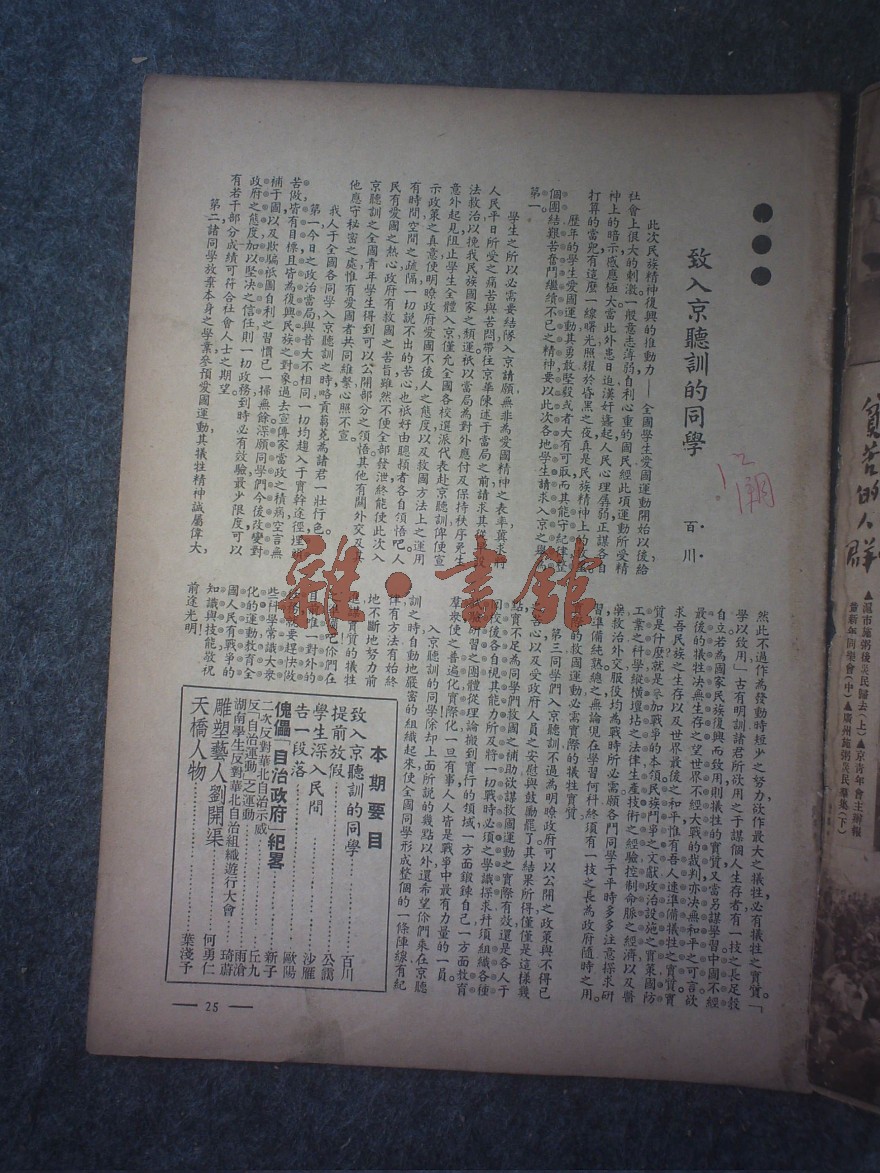 致入京聽訓的同學
百川
此次民族精神復興的推動力——全國學生愛國運動開始以後，給
社會上很大的刺激。一般意志薄弱，自利心重的國民，經此項運動所受精
神上的暗示感應極大。當此外患日迫，漢奸蠭起，人民心理孱弱，正謀各自
打算的當兒，有這麼一線曙光照耀於昏黑之夜，真是民族精神上的
歷年的學生愛國運動，其勇敢堅毅或者大有可取，而其能守紀律，整
個團結，艱苦奮鬥，繼續不已之精神，要以此次各地學生請求入京之舉為
第一。
學生之所以必需要結隊入京請願，無非為愛國精神之表率，冀求將
人民平日所受之痛苦與苦悶帶往京華，陳述于當局之前，請求其從事設
法救治，以挽我民族國家之頻運。祇以當局為對外應付及保持秩序免生
意外起見，阻止學生全體入京，僅允全國各校選派代表赴京聽訓，俾使宣
示政策之真意，使明瞭政府愛國不後人之態度，以及救國方法上之運用
有時間空間之疏隔，一切說不出的苦心，也祇好由聰穎者各自領悟吧。人
民有愛國之熱心，政府有救國之苦旨，雖然不便全部發泄，終能使此次入
京聽訓之全國青年學生，得到可以公開部分之領悟。其他有關外交及其
他應守秘密之處，惟有愛國者共同維繫，心照不宣。
我人于全國各同學入京聽訓之時，略貢蒭蕘，為諸君一壯行色。
第一今日之政治當局與昔大不相同，一切均趨入于實幹途徑，埋頭
苦做，皆有目標，且皆為復興民族之對象，過去宣傳家當政之積病，空言無
補于國，以及欺騙袛圖自利之習慣，已一掃無餘，深願同學們今後改變對
政府之態度，加以堅決之信任，則一切政務到時必有效驗，最少限度可以
有若干部分成績，可符合社會人士之期望。
第二諸同學放棄本身之學業，參預愛國運動，其犧牲精神誠屬偉大，
然此不過作為發動時短少之努力，欲作最大之犧牲，必有犧牲之實質。「
學以致用」古有明訓，諸君所欲用之于謀個人生存者，有一技之長足殼
自立，若為國家民族復興而致用，則犧牲的實質又當另謀學習。中國不經
最後的犧牲，決無生存之望，世界不經大戰的裁判，亦決無和平之可言。欲
求吾民族之生存，以及世界最後之和平，惟有吾人速準備犧牲之實質。實
質是什麼？就是參加戰爭的本領，民族鬥爭之文獻，政治設施之實策，國防
工業之科學，縱橫壇坫之法律，生產技術之經驗，控制命脈之經濟，以及醫
藥救治外交服役，均為戰時所必需，願各門同學于平時多多注意探求研
習，準備純熟，總之無論現在學習何科，終須有一技之長為政府隨時之用。
的救國運動，必需實際的犧牲實質。
第三同學們入京聽訓，不過為明瞭政府可以公開之政策，與不得已
苦心，以及受政府人員之安慰與鼓勵罷了。其結果所得僅僅是這樣幾
點，實不足為同學們救國之補助，欲謀救國運動之實際有效，還是各人于
回校後，各自視其能力所及，將一切戰時必須之學識，探求并須組織各種
試驗所習之團體，從理論搬到實行的領域，一方面鍛鍊自己，一方面教育
羣衆，使之普遍化實際化，一旦有事，人人皆是戰爭中最有力量的一員。
入京聽訓的同學，除却上面所說的幾點以外，還希望你們乘在京聽
訓之時，自動地嚴密的組織起來，使全國同學形成整個的一條陣線，有紀
律有方法有始終
地不斷地努力前
實質的犧牲
己你們在
惟一對外的
就要趕快做
些科學常識大衆
化的運動，教育全
國人民有戰爭的
知識與技能。敬祝
前途光明！
本期要目
致入京聽訓的同學……百川
提前放假……公靄
學生深入民間……沙雁
告一段落……歐陽
傀儡「自治政府」紀畧
二次反對華北自治示威……新子
反「自治運動」之運動……丘九
湖南學生反對華北自治組織遊行大會……雨滄
雕塑藝人劉開渠……琦蔚
天橋人物……何勇仁
葉淺予
— 25 —
雜·書館
貧苦的人群
▲滬市施粥後災民歸去（上）▲京青年會主辦報
童新年同樂會（中）▲廣州施粥災民羣集（下）